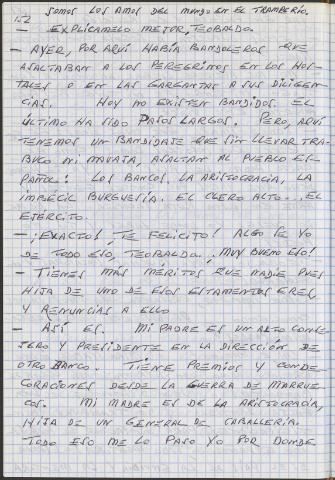 SOMOS LOS AMOS DEL MUNDO EN EL TRAMBERÍO.
152
— EXPLÍCAMELO MEJOR, TEOBALDO.
— AYER, POR AQUÍ HABÍA BANDOLEROS QUE
ASALTABAN A LOS PEREGRINOS EN LOS HOS-
TALES O EN LAS GARGANTAS A SUS DILIGEN-
CIAS. HOY NO EXISTEN BANDIDOS. EL
ÚLTIMO HA SIDO PASOS LARGOS. PERO, AQUÍ
TENEMOS UN BANDIDAJE QUE SIN LLEVAR TRA-
BUCO NI NAVAJA, ASALTAN AL PUEBLO ES-
PAÑOL: LOS BANCOS. LA ARISTOCRACIA, LA
IMBÉCIL BURGUESÍA. EL CLERO ALTO... EL
EJÉRCITO.
— ¡EXACTO! ¡TE FELICITO! ALGO SÉ YO
DE TODO ESO, TEOBALDO. ¡MUY BUENO ESO!
— TIENES MÁS MÉRITOS QUE NADIE PUES
HIJA DE UNO DE ESOS ESTAMENTOS ERES,
Y RENUNCIAS A ELLO.
— ASÍ ES. MI PADRE ES UN ALTO CONSE-
JERO Y PRESIDENTE EN LA DIRECCIÓN DE
OTRO BANCO. TIENE PREMIOS Y CONDE-
CORACIONES DESDE LA GUERRA DE MARRUE-
COS. MI MADRE ES DE LA ARISTOCRACIA,
HIJA DE UN GENERAL DE CABALLERÍA.
TODO ESO ME LO PASO YO POR DONDE